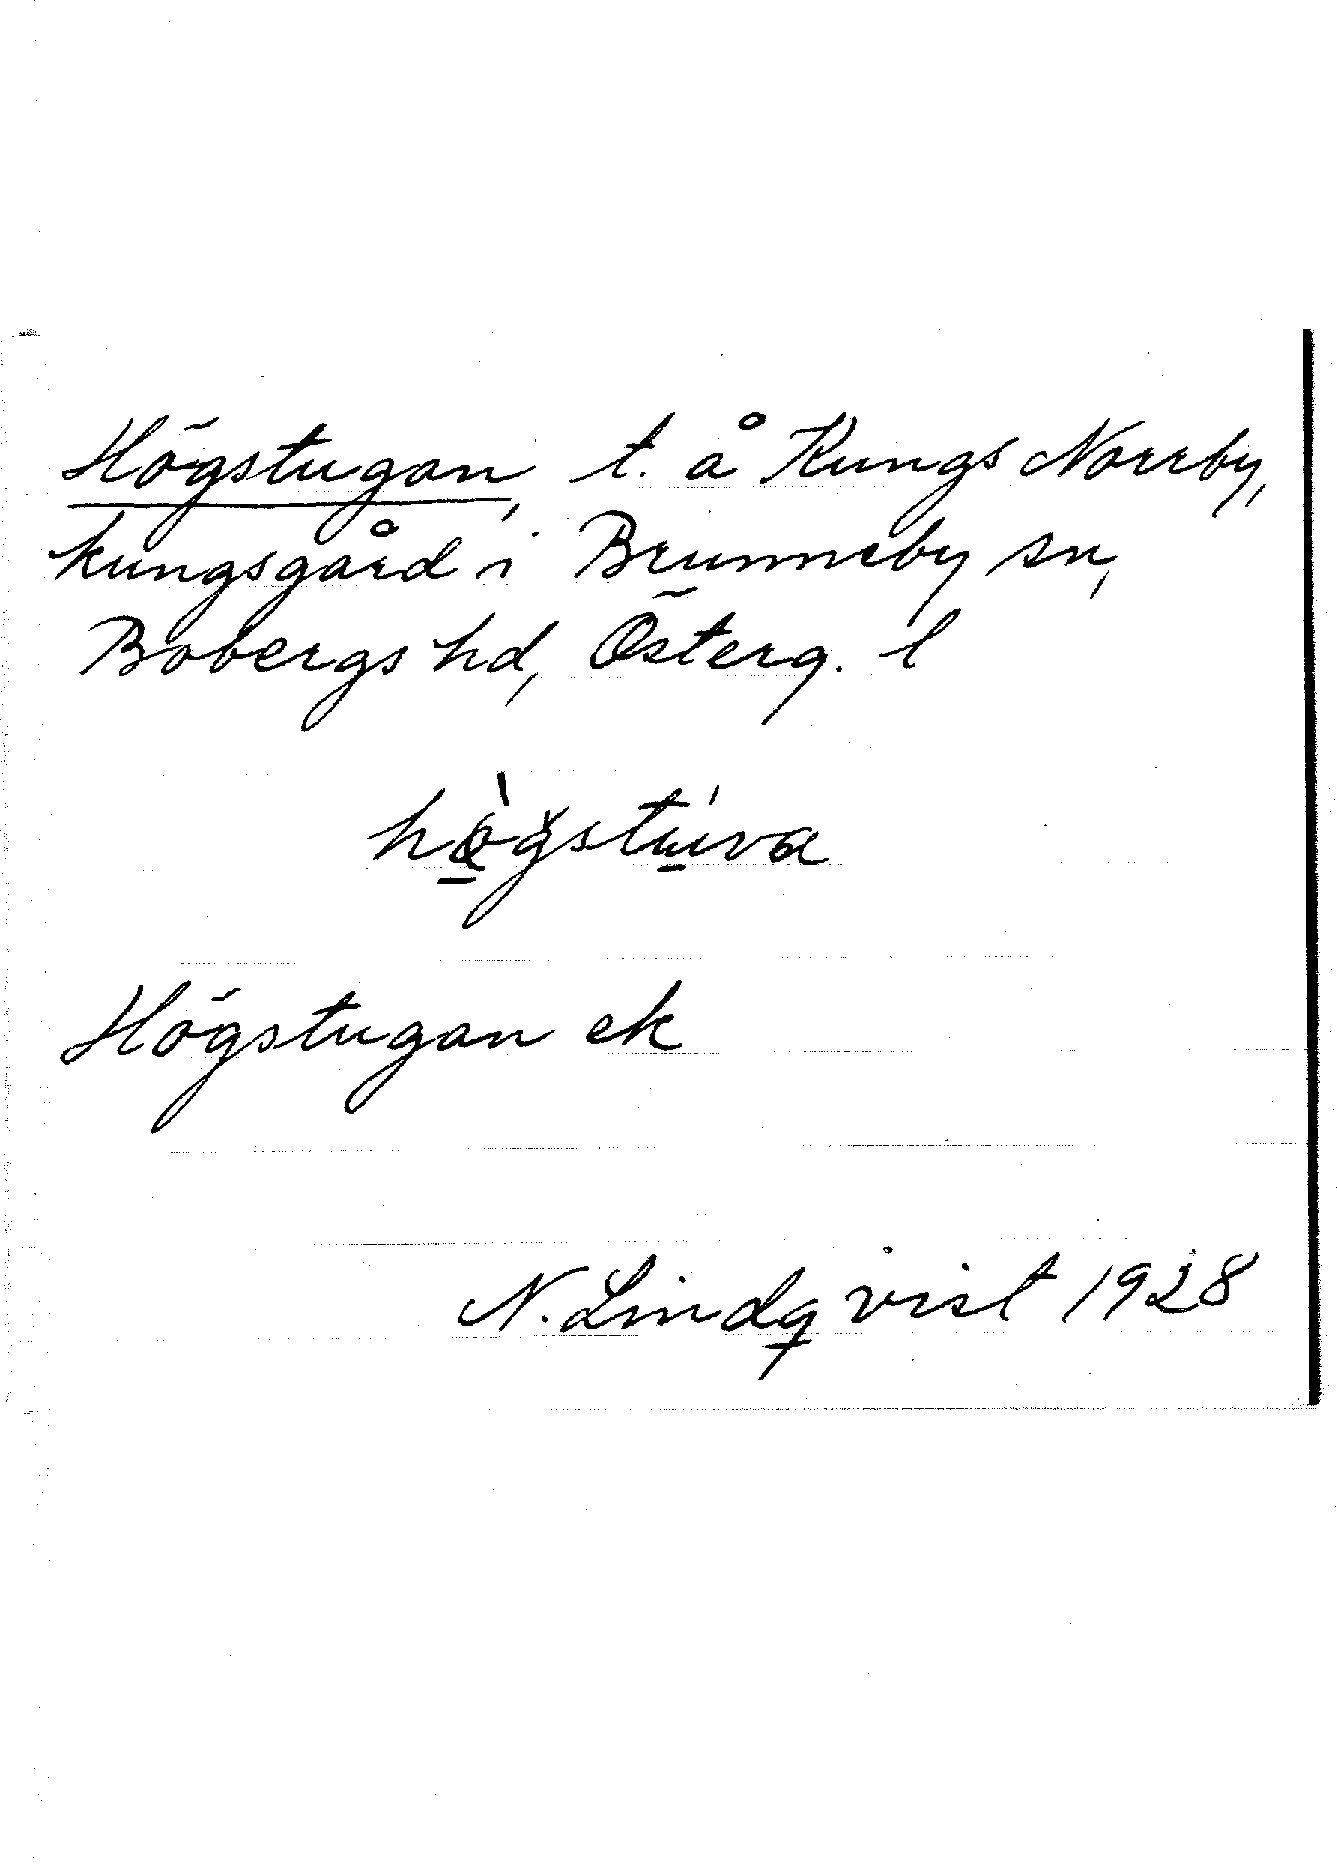 Högstugan, t. å Kungs Norrby,
kungsgård i Brunneby sn,
Bobergs hd, Österg. l
hö̀gstúva
Högstugan ek
N. Lindqvist 1928